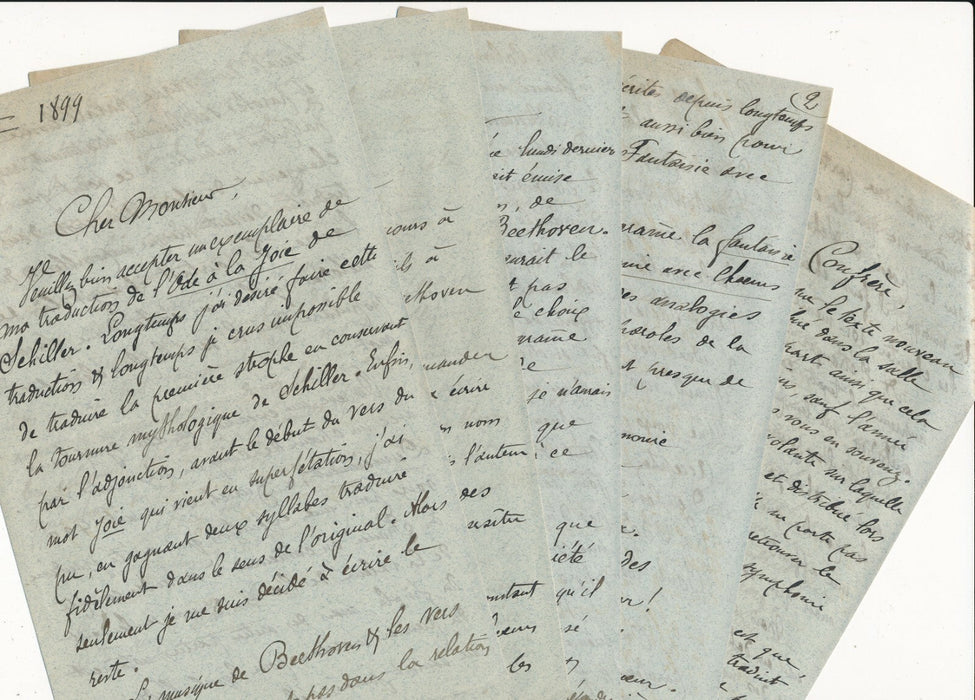 1899
Cher Monsieur,
Veuillez bien accepter un exemplaire de
ma traduction de l'Ode à la Joie de
Schiller. Longtemps j'ai désiré faire cette
traduction & longtemps je crus impossible
de traduire la première strophe en conservant
la tournure mythologique de Schiller. Enfin,
par l'adjonction, avant le début du vers du
mot Joie qui vient en superfétation, j'ai
pu, en gagnant deux syllabes traduire
fidèlement dans le sens de l'original. Alors dès
seulement je me suis décidé à écrire le
reste.
musique de Beethoven & les vers
pas dans la relation
cours à
à
écrire
nom
l'auteur
lundi dernier
émise
de
Beethoven.
aurait le
pas
choix
je n'amais
que
ce
que
qu'il
sé
les
2
depuis longtemps
aussi bien pour
Fantaisie avec
la fantaisie
avec Chœurs
analogies
paroles de la
presque de
des
Confrère,
le texte nouveau
dans la salle
part ainsi que cela
sauf l'année
vous en souvenez.
volante sur laquelle
et distribué lors
ne porte pas
retrouver le
symphonie
est que
traduit